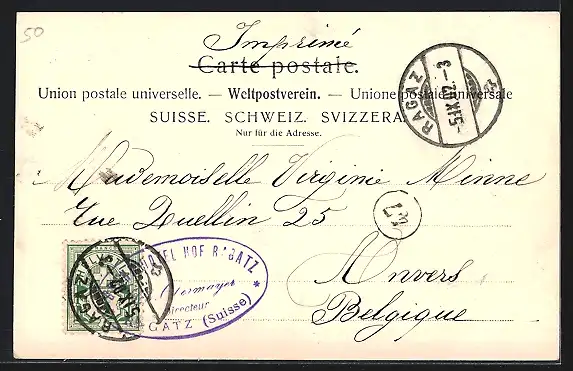 50
Imprimé
Carte postale.
Union postale universelle. — Weltpostverein. — Unione postale universale
SUISSE. SCHWEIZ. SVIZZERA.
Nur für die Adresse.
RAGAZ
-5.IX.02.-3
Mademoiselle Virginie Minne
Rue Quellin 25
Anvers
Belgique
HOTEL HOF RAGATZ
Directeur
RAGATZ (Suisse)
RAGAZ